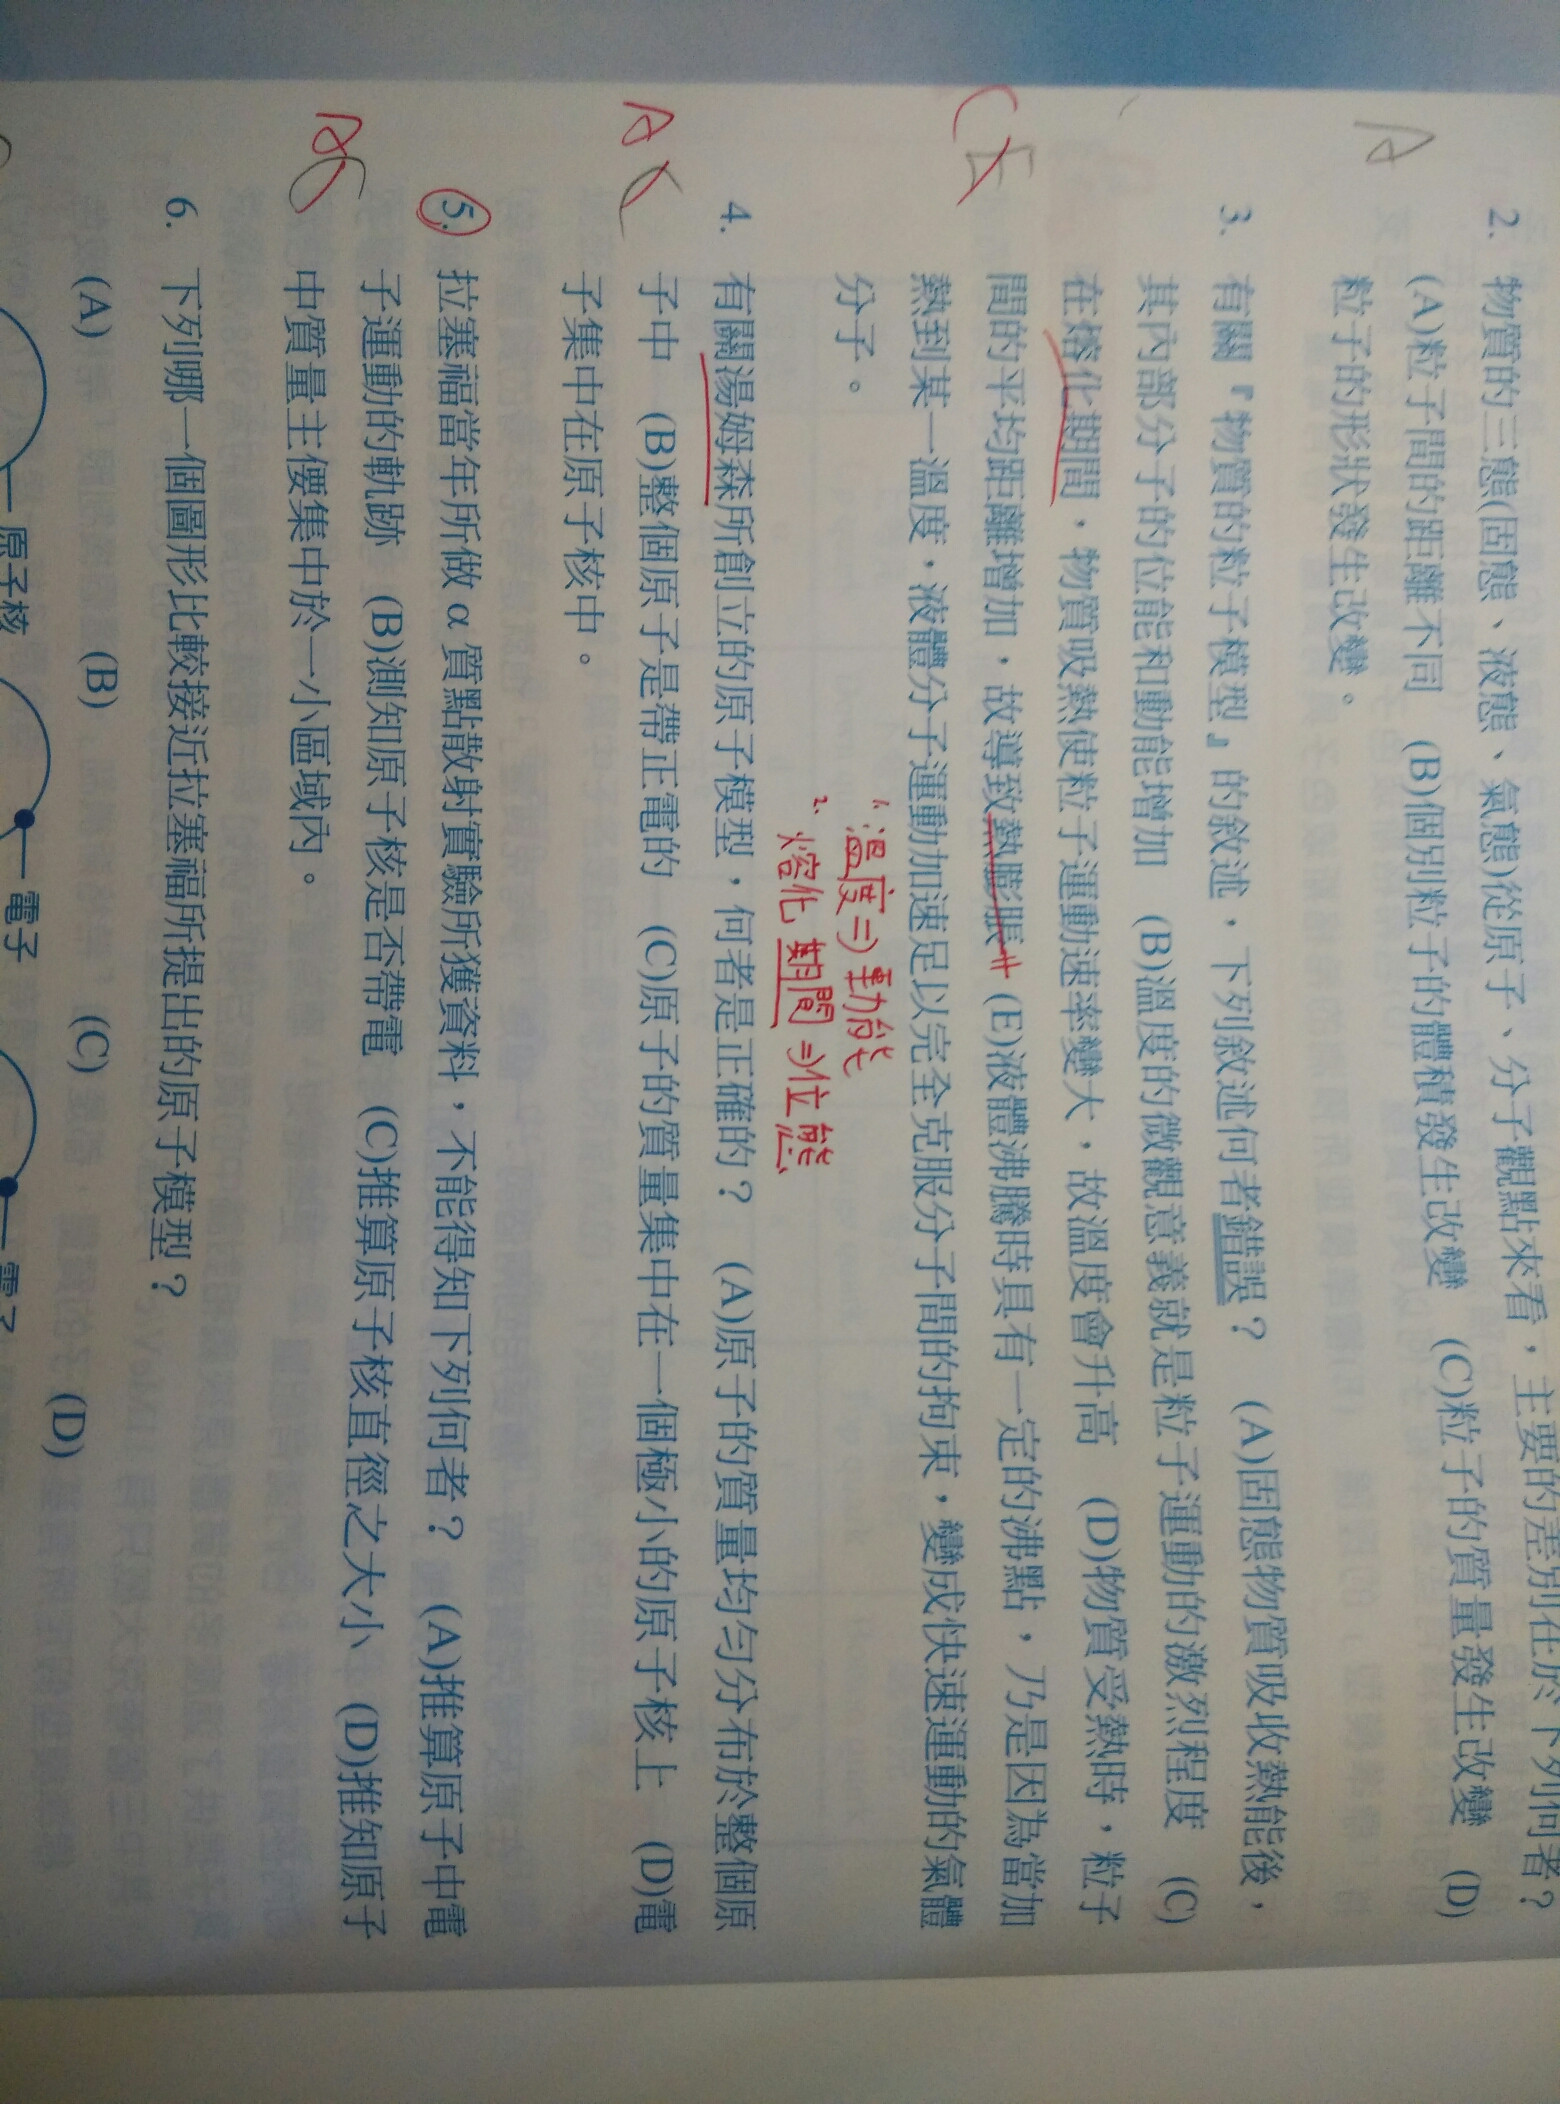 A
2. 物質的三態(固態、液態、氣態)從原子、分子觀點來看，主要的差別在於下列何者？
(A)粒子間的距離不同 (B)個別粒子的體積發生改變 (C)粒子的質量發生改變 (D)
粒子的形狀發生改變。
C E
3. 有關『物質的粒子模型』的敘述，下列敘述何者錯誤？ (A)固態物質吸收熱能後，
其內部分子的位能和動能增加 (B)溫度的微觀意義就是粒子運動的激烈程度 (C)
在熔化期間，物質吸熱使粒子運動速率變大，故溫度會升高 (D)物質受熱時，粒子
間的平均距離增加，故導致熱膨脹 (E)液體沸騰時具有一定的沸點，乃是因為當加
熱到某一溫度，液體分子運動加速足以完全克服分子間的拘束，變成快速運動的氣體
分子。
1. 溫度⇒動能
2. 熔化期間⇒位態
A C
4. 有關湯姆森所創立的原子模型，何者是正確的？ (A)原子的質量均勻分布於整個原
子中 (B)整個原子是帶正電的 (C)原子的質量集中在一個極小的原子核上 (D)電
子集中在原子核中。
A C
5. 拉塞福當年所做 α 質點散射實驗所獲資料，不能得知下列何者？ (A)推算原子中電
子運動的軌跡 (B)測知原子核是否帶電 (C)推算原子核直徑之大小 (D)推知原子
中質量主僾集中於一小區域內。
6. 下列哪一個圖形比較接近拉塞福所提出的原子模型？
(A) (B) (C) (D)
原子核
電子